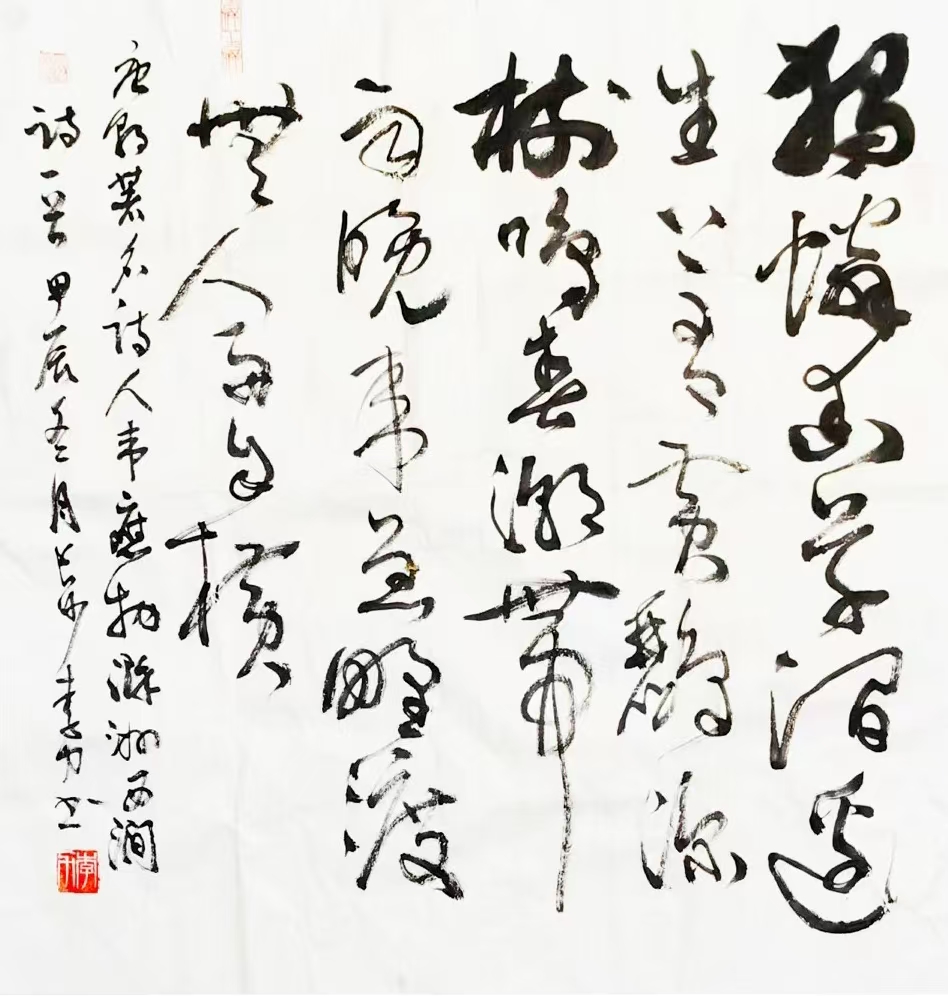 獨憐幽草澗邊
生上有黃鸝深
樹鳴春潮帶
雨晚来急野渡
無人舟自橫
唐朝著名詩人韦應物滁州西澗
詩一首甲辰冬月长沙李力书